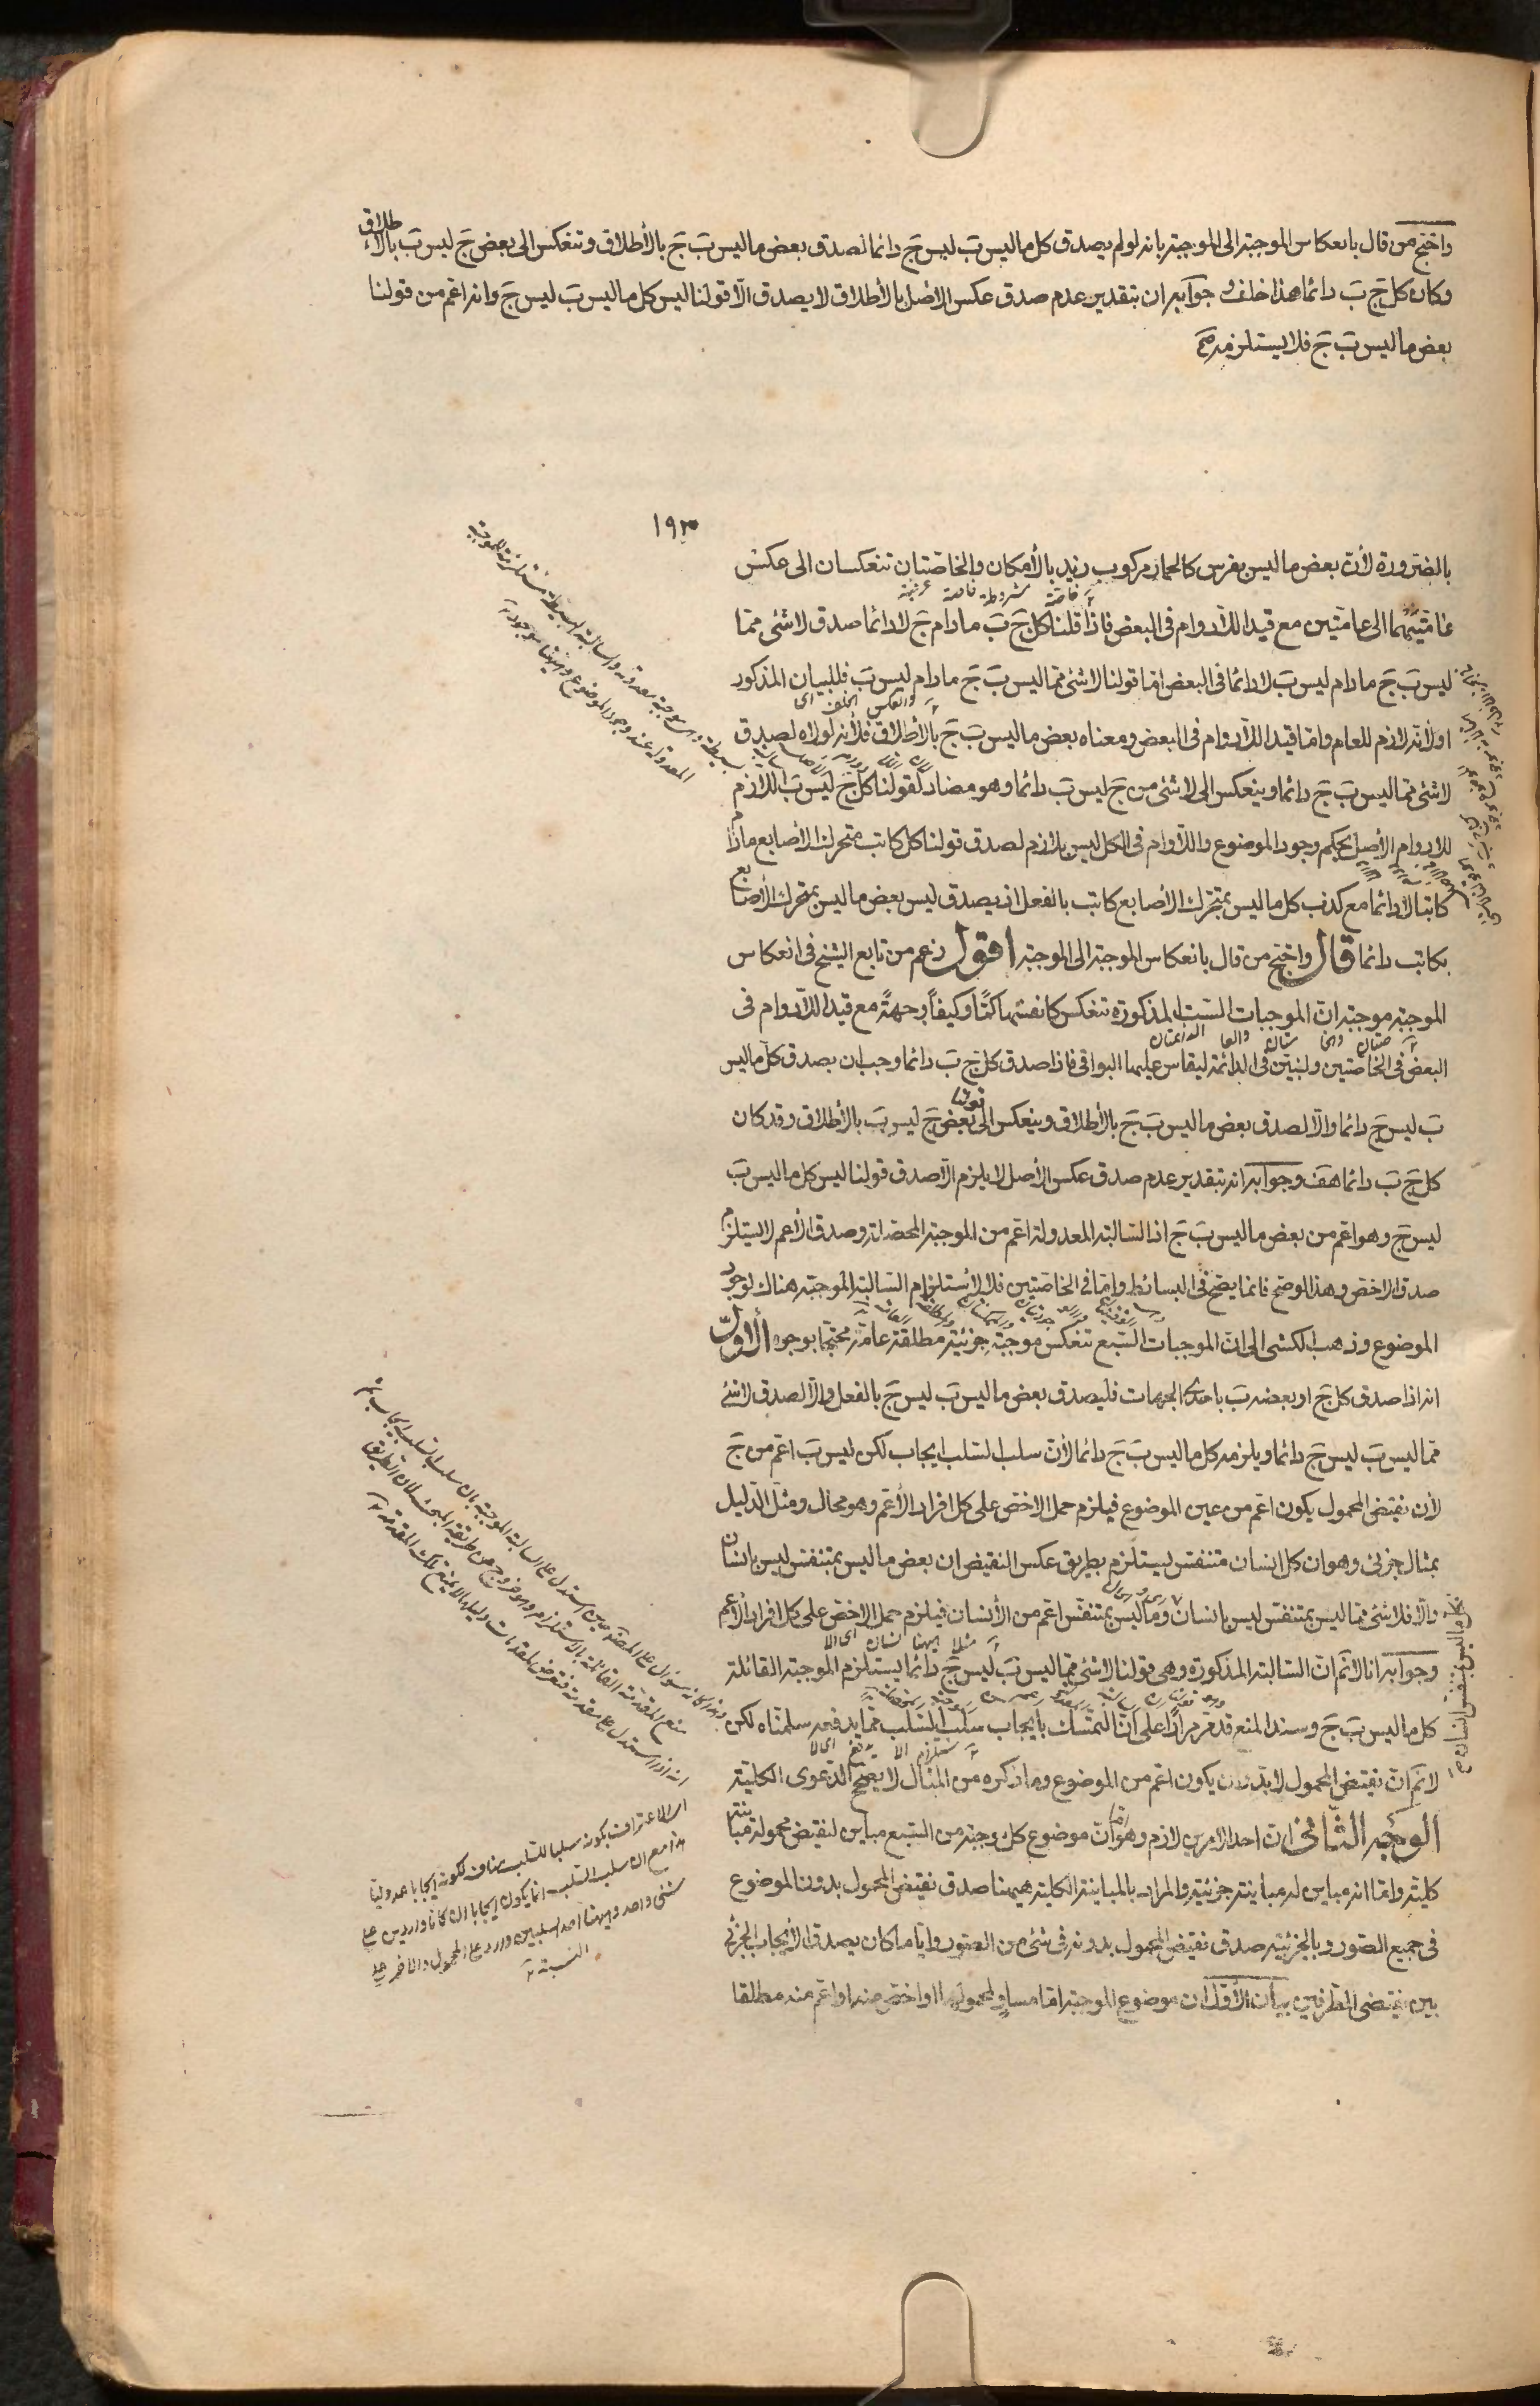 واحتج من قال بانعكاس الموجبة الى الموجبة بانه لو لم يصدق كل ما ليس بَ ليس جَ دائما لصدق بعض ما ليس بَ جَ بالأطلاق وتنعكس الى بعض جَ ليس بَ بالأطلاق
وكان كل جَ بَ دائما هذا خلف وجوابه ان بتقدير عدم صدق عكس الاصل بالأطلاق لا يصدق الّا قولنا ليس كل ما ليس بَ ليس جَ وانه اعم من قولنا
بعض ما ليس بَ جَ فلا يستلزمه
١٩٣
بالضرورة لأن بعض ما ليس بفرس كالحمار مركوب زيد بالأمكان والخاصتان تنعكسان الى عكس
عامّتيهما الى عامّتين مع قيد اللادوام فى البعض فاذا قلنا كل جَ بَ ما دام جَ لا دائما صدق لا شئ مما
ليس بَ جَ ما دام ليس بَ لا دائما فى البعض اما قولنا لا شئ مما ليس بَ جَ ما دام ليس بَ فللبيان المذكور
اولأنه لازم للعام واما قيد اللادوام فى البعض ومعناه بعض ما ليس بَ جَ بالأطلاق فلأنه لولاه لصدق
لا شئ مما ليس بَ جَ دائما وينعكس الى لا شئ من جَ ليس بَ دائما وهو مضاد لقولنا كل جَ ليس بَ اللازم
للادوام الأصل بحكم وجود الموضوع واللادوام فى الكل ليس بلازم لصدق قولنا كل كاتب متحرك الأصابع ما دام
كاتبا لا دائما مع كذب كل ما ليس بمتحرك الأصابع كاتب بالفعل اذ يصدق ليس بعض ما ليس بمتحرك الأصابع
بكاتب دائما قال واحتج من قال بانعكاس الموجبة الى الموجبة اقول زعم من تابع الشيخ فى انعكاس
الموجبة موجبة ان الموجبات الست المذكورة تنعكس كانفسها كمًّا وكيفاً وجهةً مع قيد اللادوام فى
البعض فى الخاصتين ولنبين فى الدائمة ليقاس عليها البواقى فاذا صدق كل جَ بَ دائما وجب ان يصدق كل ما ليس
بَ ليس جَ دائما والّا لصدق بعض ما ليس بَ جَ بالأطلاق وينعكس الى قولنا بعض جَ ليس بَ بالأطلاق وقد كان
كل جَ بَ دائما هف وجوابه انه بتقدير عدم صدق عكس الأصل لا يلزم الّا صدق قولنا ليس كل ما ليس بَ
ليس جَ وهو اعم من بعض ما ليس بَ جَ اذ السالبة المعدولة اعم من الموجبة المحصلة وصدق الأعم لا يستلزم
صدق الاخص وهذا لو صح فانما يصح فى البسائط واما فى الخاصتين فلا لاستلزام السالبة الموجبة هناك لوجود
الموضوع وذهب الكشى الى ان الموجبات السبع تنعكس موجبة جزئية مطلقة عامة محتجا بوجوه الأول
انه اذا صدق كل جَ او بعضه بَ باحدى الجهات فليصدق بعض ما ليس بَ ليس جَ بالفعل والّا لصدق لا شئ
مما ليس بَ ليس جَ دائما ويلزمه كل ما ليس بَ جَ دائما لأن سلب السلب ايجاب لكن ليس بَ اعم من جَ
لأن نقيض المحمول يكون اعم من عين الموضوع فيلزم حمل الاخص على كل افراد الأعم وهو محال ومثل الدليل
بمثال جزئى وهو ان كل انسان متنفس يستلزم بطريق عكس النقيض ان بعض ما ليس بمتنفس ليس بانسان
والّا فلا شئ مما ليس بمتنفس ليس بانسان وما ليس بمتنفس اعم من الأنسان فيلزم حمل الاخص على كل افراد الأعم
وجوابه انا لا نم ان السالبة المذكورة وهى قولنا لا شئ مما ليس بَ ليس جَ دائما يستلزم الموجبة القائلة
كل ما ليس بَ جَ وسند المنع قد مر مرارا على ان التمسك بايجاب سلب السلب مما يدفعه سلمناه لكن
لا نم ان نقيض المحمول لا بد وان يكون اعم من الموضوع وما ذكره من المثال لا يصحح الدعوى الكلية
الوجه الثانى ان احد الامرين لازم وهو اما ان موضوع كل موجبة من السبع مباين لنقيض محموله مباينة
كلية واما انه مباين له مباينة جزئية والمراد بالمباينة الكلية ههنا صدق نقيض المحمول بدون الموضوع
فى جميع الصور وبالجزئية صدق نقيض المحمول بدونه فى شئ من الصور وايا ما كان يصدق الأيجاب الجزئى
بين نقيضى الطرفين بيان الأول ان موضوع الموجبة اما مساو لمحمولها او اخص منه او اعم منه مطلقا
اى الاعتراف بكونه سلبا للسلب مناف لكونه ايجابا عدوليا
هذا مع ان سلب السلب انما يكون ايجابا ان كانا واردين على
شئ واحد وههنا احد السلبين وارد على المحمول والآخر على
النسبة